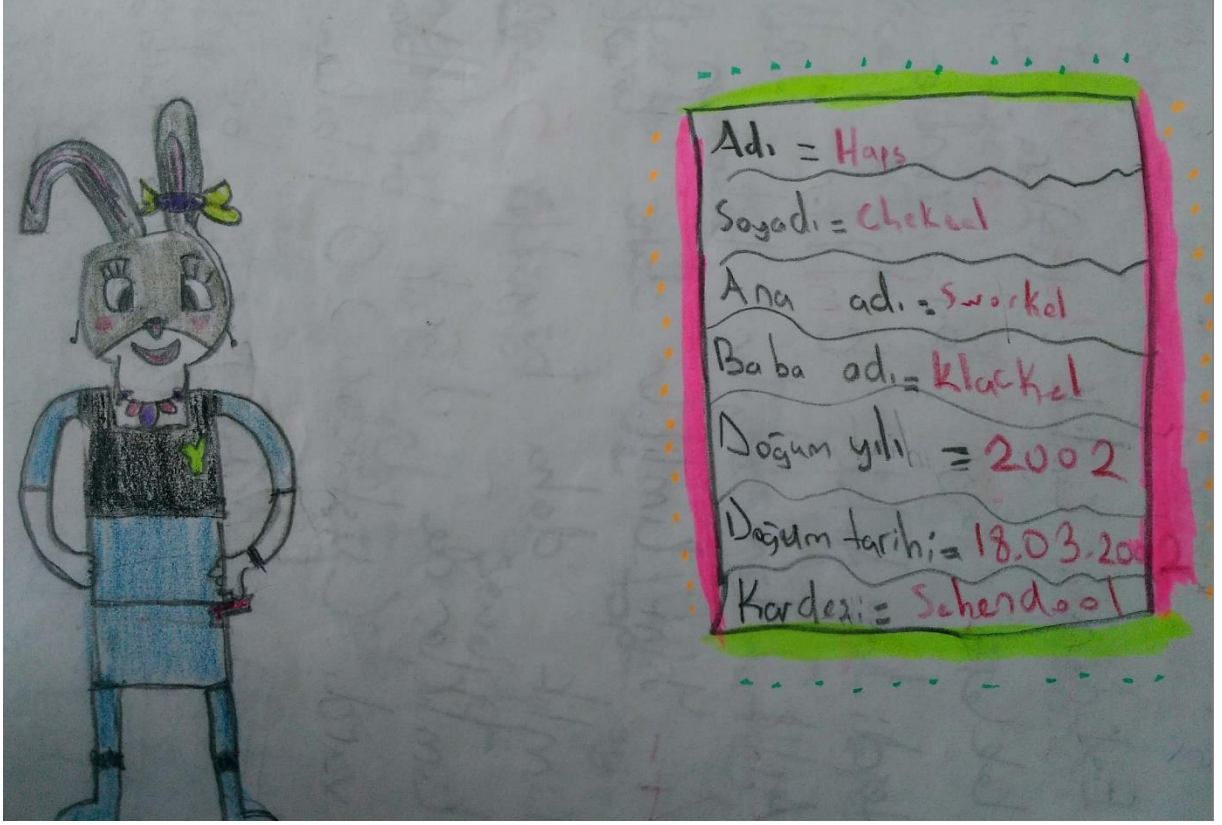 Adı = Haps
Soyadı = Cheksel
Ana adı = Sworkel
Baba adı = Klackel
Doğum yılı = 2002
Doğum tarihi = 18.03.2002
Kardeşi = Schendool